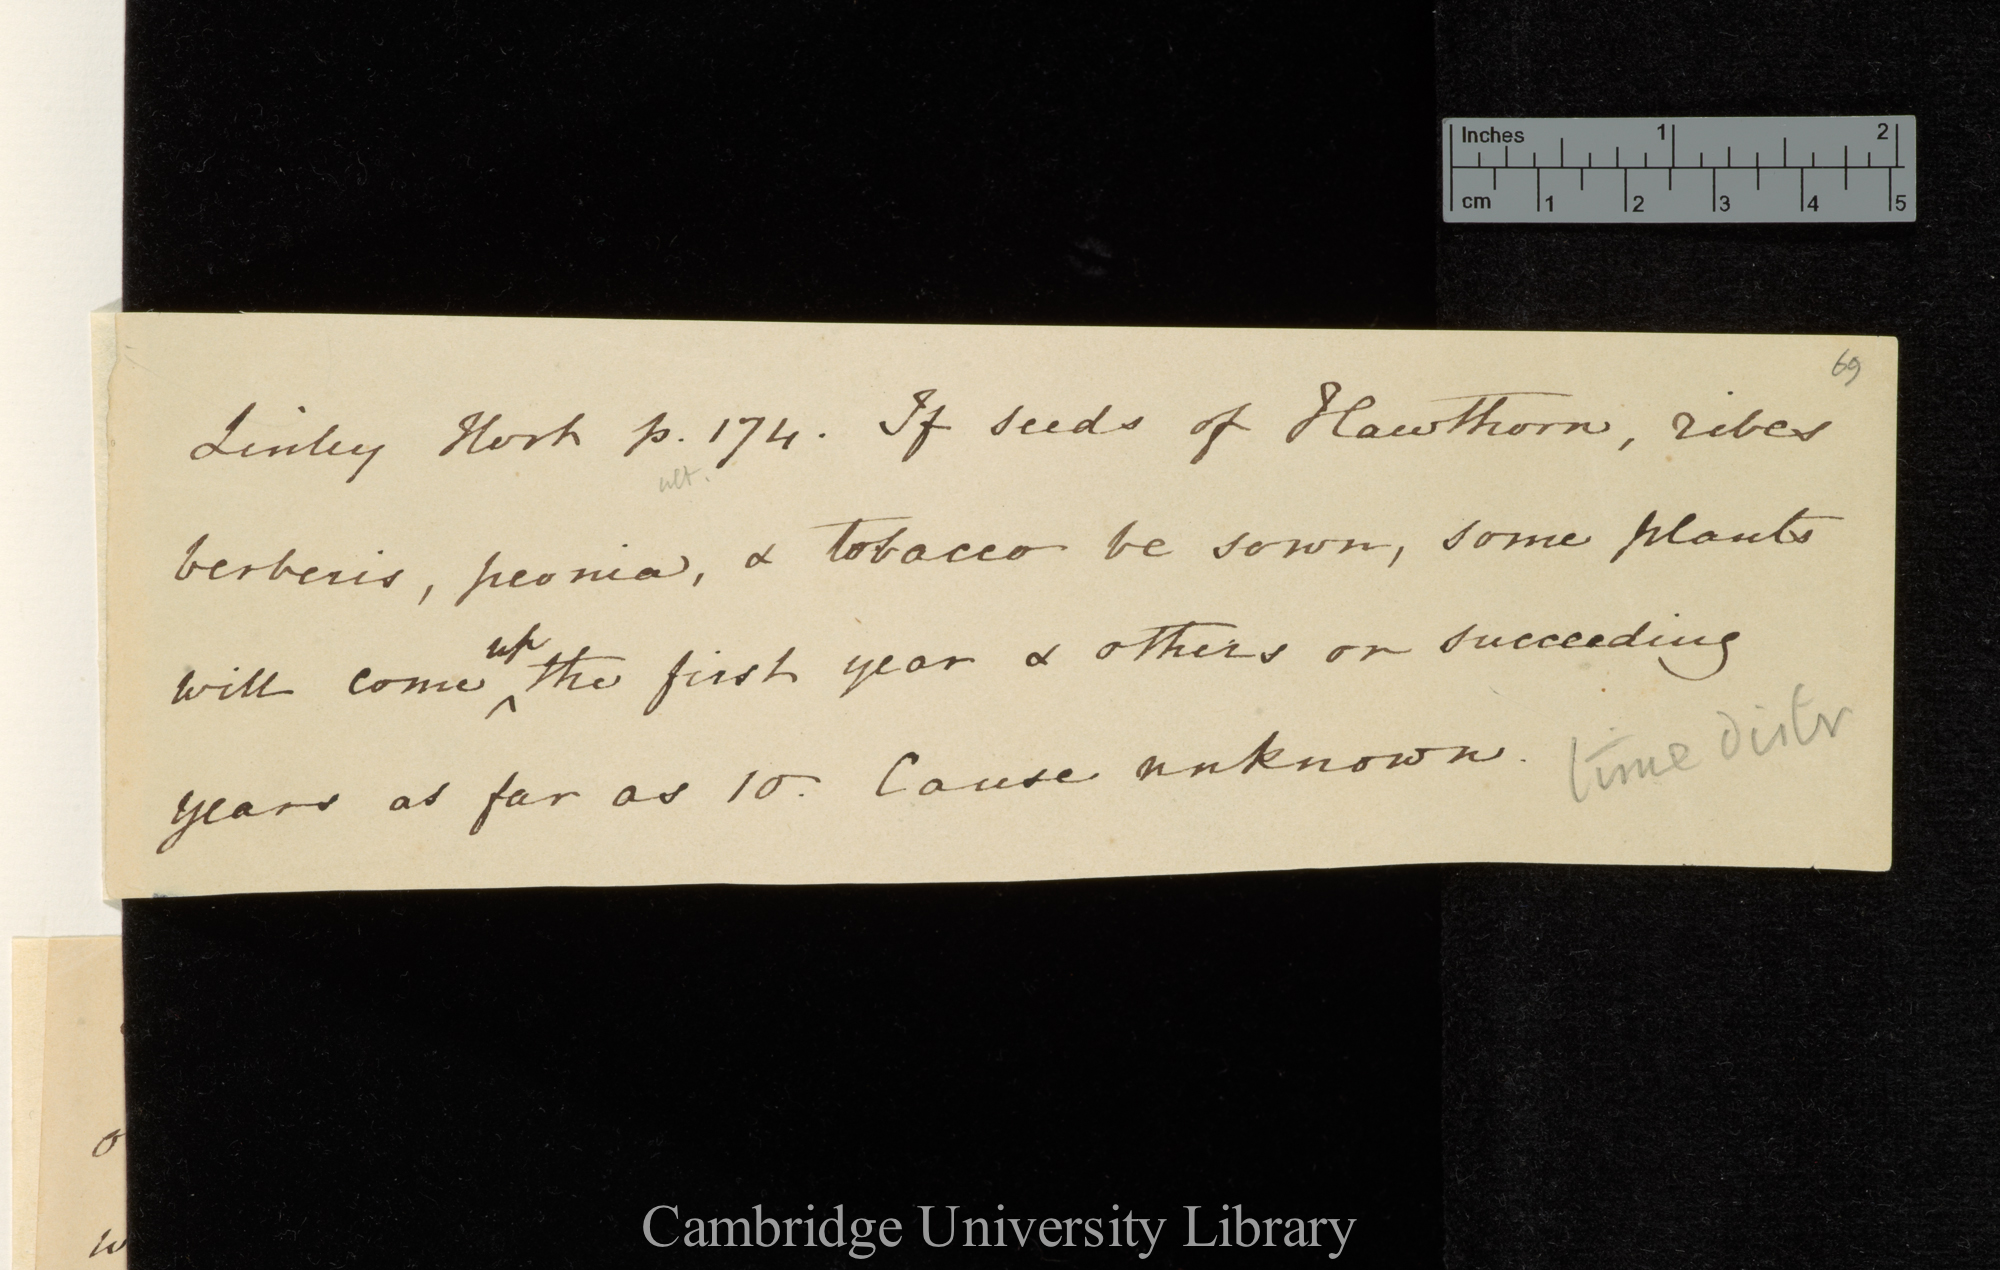 Inches 1 2
cm 1 2 3 4 5
69
Linley Hort p. 174. If seeds of Hawthorn, ribes
ult.
berberis, peonia, & tobacco be sown, some plants
up
will come ^ the first year & others on succeeding
years as far as 10. Cause unknown. time distr
o
w
Cambridge University Library